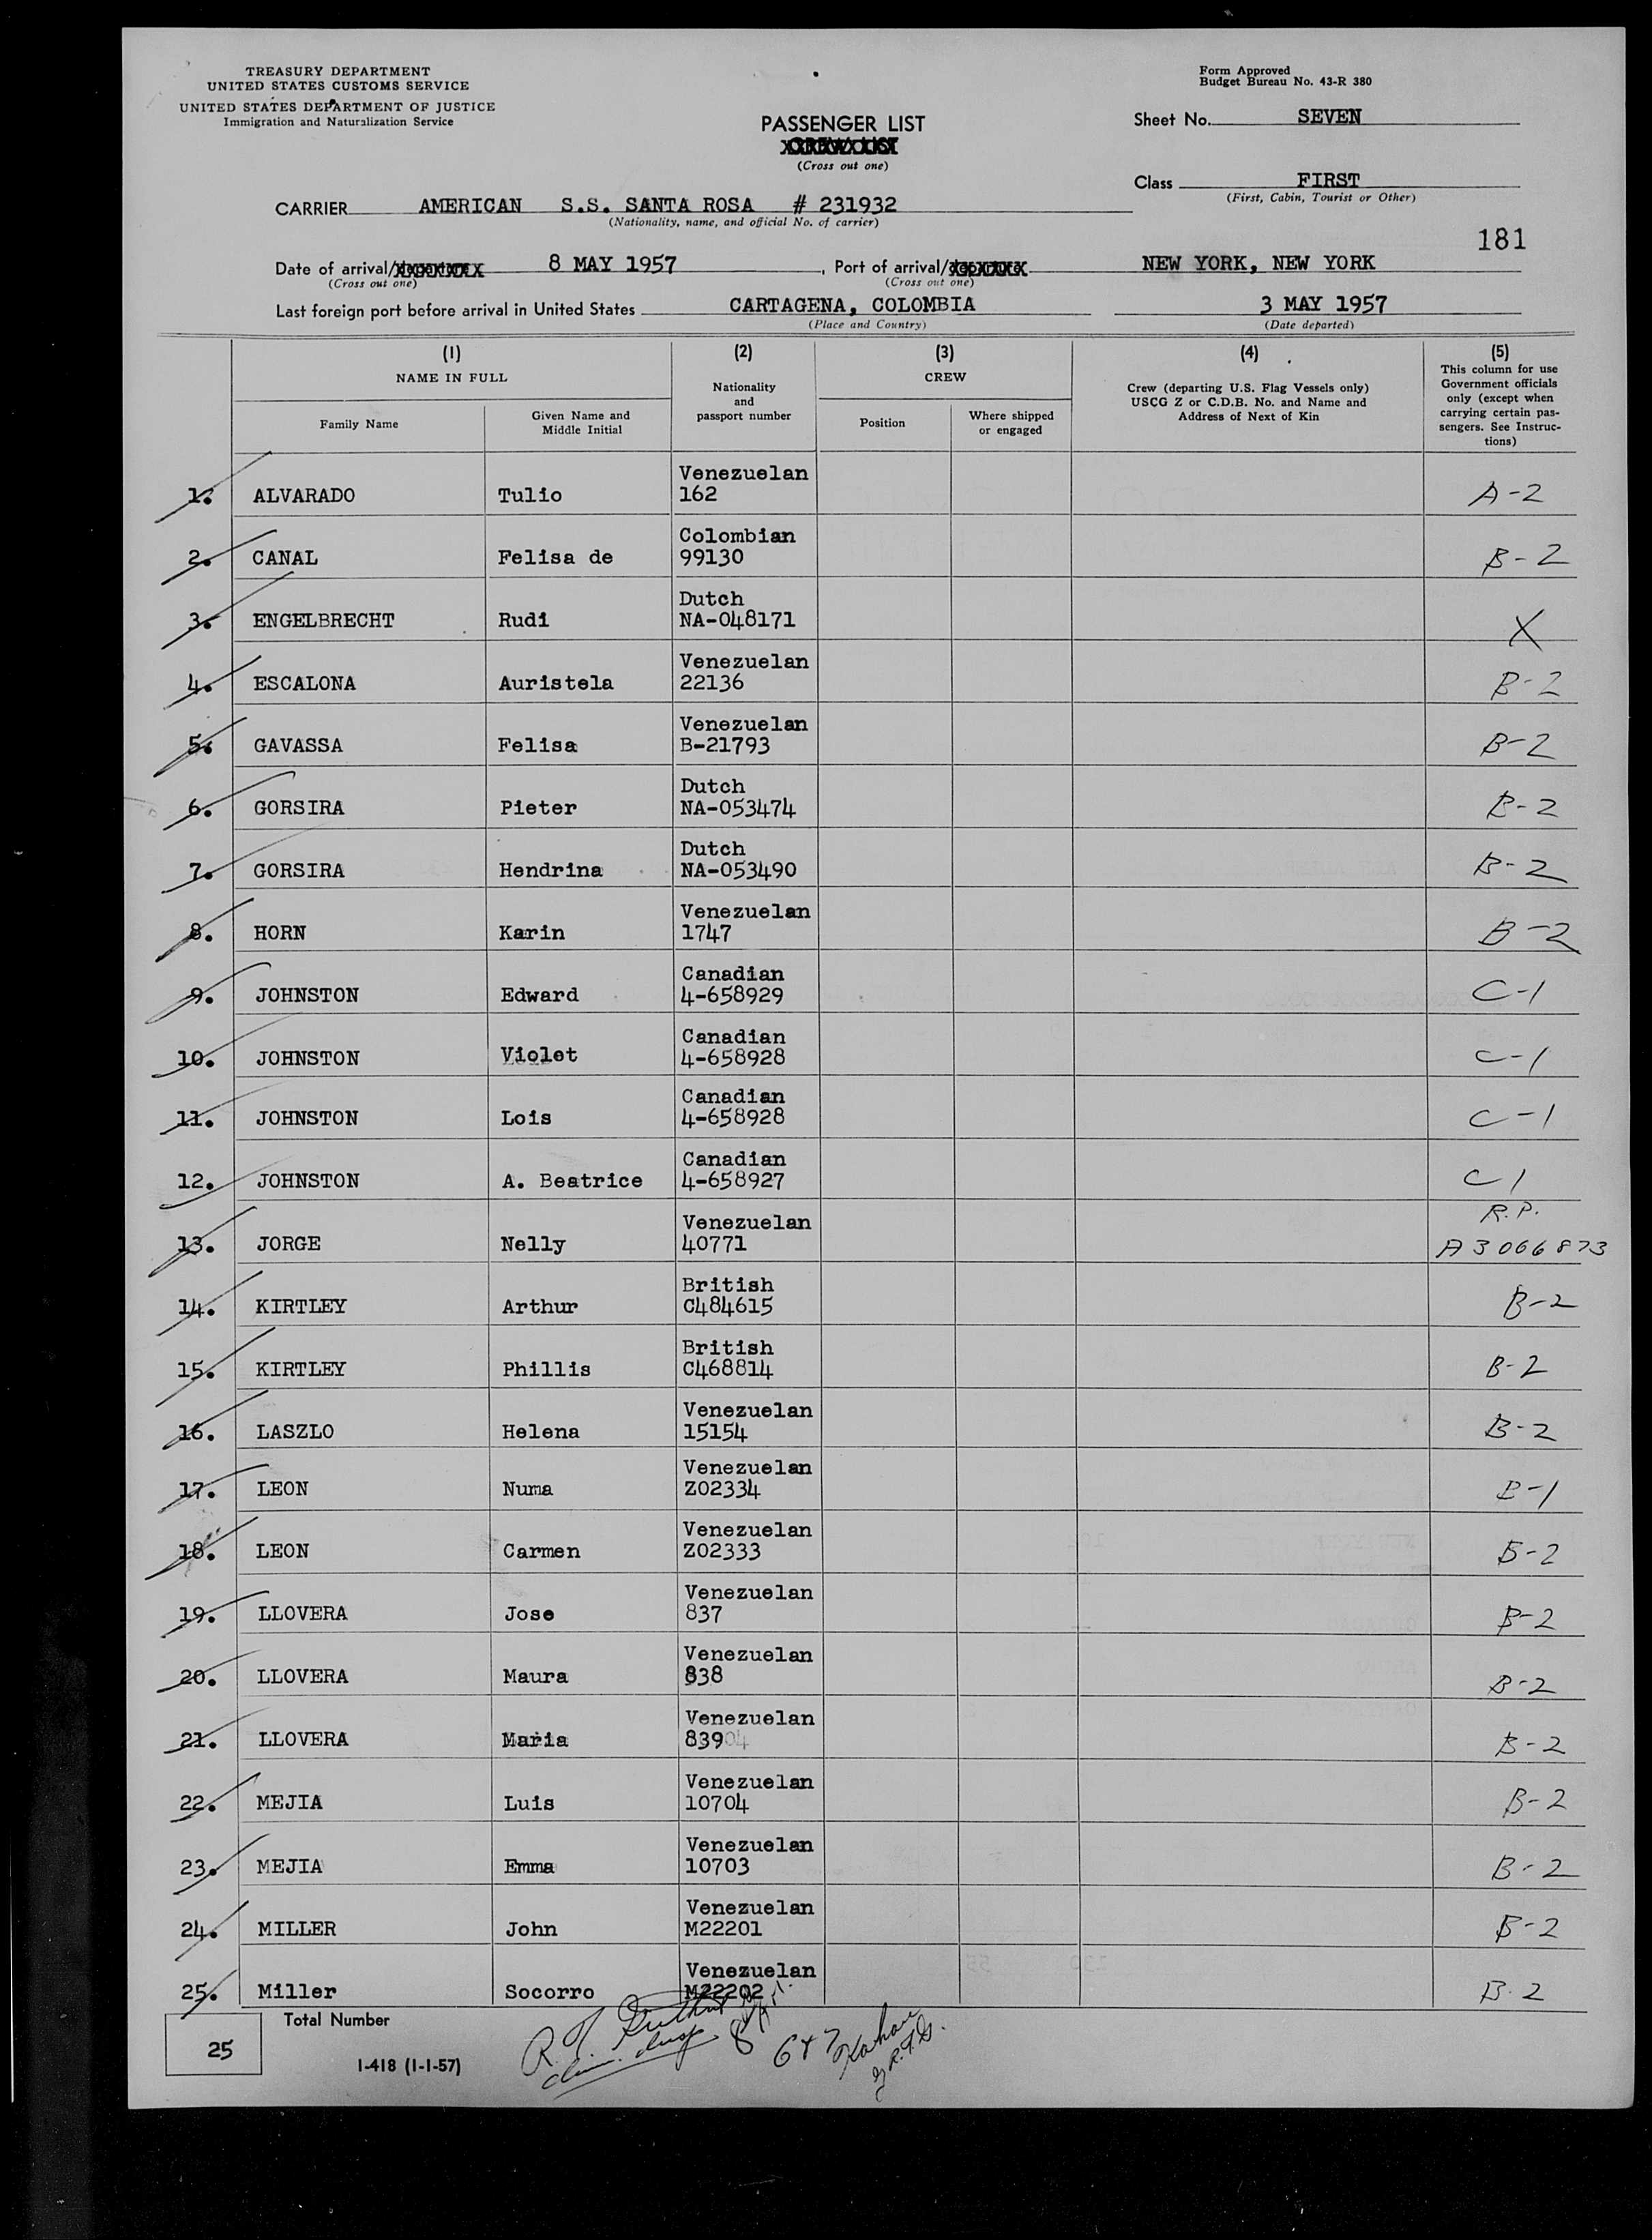 TREASURY DEPARTMENT
UNITED STATES CUSTOMS SERVICE
UNITED STATES DEPARTMENT OF JUSTICE
Immigration and Naturalization Service
Form Approved
Budget Bureau No. 43-R 380
PASSENGER LIST
(Cross out one)
Sheet No. SEVEN
Class FIRST
(First, Cabin, Tourist or Other)
CARRIER AMERICAN S.S. SANTA ROSA # 231932
(Nationality, name, and official No. of carrier)
181
Date of arrival/ 8 MAY 1957, Port of arrival/ NEW YORK, NEW YORK
(Cross out one) (Cross out one)
Last foreign port before arrival in United States CARTAGENA, COLOMBIA 3 MAY 1957
(Place and Country) (Date departed)
(1) (2) (3) (4) (5)
NAME IN FULL
Family Name
Given Name and
Middle Initial
Nationality
and
passport number
CREW
Position
Where shipped
or engaged
Crew (departing U.S. Flag Vessels only)
USCG Z or C.D.B. No. and Name and
Address of Next of Kin
This column for use
Government officials
only (except when
carrying certain pas-
sengers. See Instruc-
tions)
Venezuelan
1. ALVARADO Tulio 162 A-2
Colombian
2. CANAL Felisa de 99130 B-2
Dutch
3. ENGELBRECHT Rudi NA-048171 X
Venezuelan
4. ESCALONA Auristela 22136 B-2
Venezuelan
5. GAVASSA Felisa B-21793 B-2
Dutch
6. GORSIRA Pieter NA-053474 B-2
Dutch
7. GORSIRA Hendrina NA-053490 B-2
Venezuelan
8. HORN Karin 1747 B-2
Canadian
9. JOHNSTON Edward 4-658929 C-1
Canadian
10. JOHNSTON Violet 4-658928 C-1
Canadian
11. JOHNSTON Lois 4-658928 C-1
Canadian
12. JOHNSTON A. Beatrice 4-658927 C 1
Venezuelan R.P.
13. JORGE Nelly 40771 A3066873
British
14. KIRTLEY Arthur C484615 B-2
British
15. KIRTLEY Phillis C468814 B-2
Venezuelan
16. LASZLO Helena 15154 B-2
Venezuelan
17. LEON Numa Z02334 B-1
Venezuelan
18. LEON Carmen Z02333 B-2
Venezuelan
19. LLOVERA Jose 837 B-2
Venezuelan
20. LLOVERA Maura 838 B-2
Venezuelan
21. LLOVERA Maria 839 B-2
Venezuelan
22. MEJIA Luis 10704 B-2
Venezuelan
23. MEJIA Emma 10703 B-2
Venezuelan
24. MILLER John M22201 B-2
Venezuelan
25. Miller Socorro M22202 B-2
Total Number
25
I-418 (1-1-57)